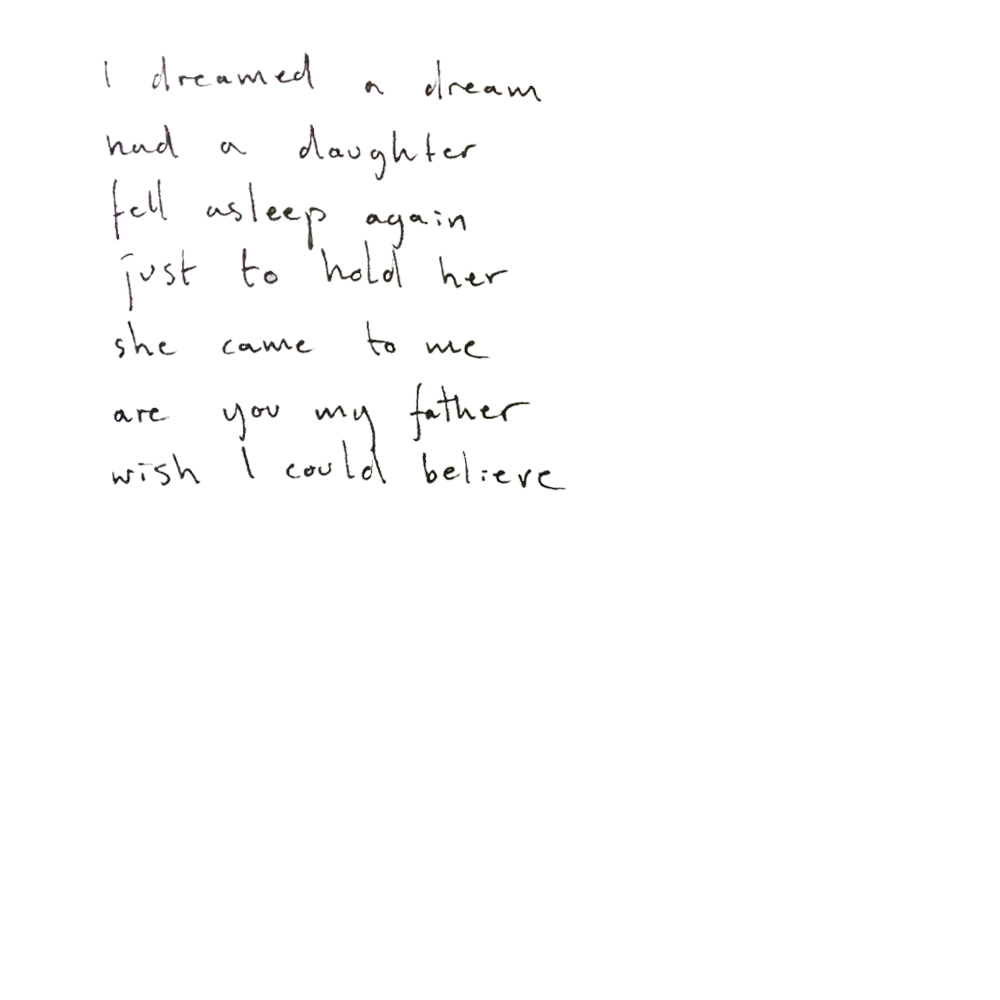 I dreamed a dream
had a daughter
fell asleep again
just to hold her
she came to me
are you my father
wish I could believe